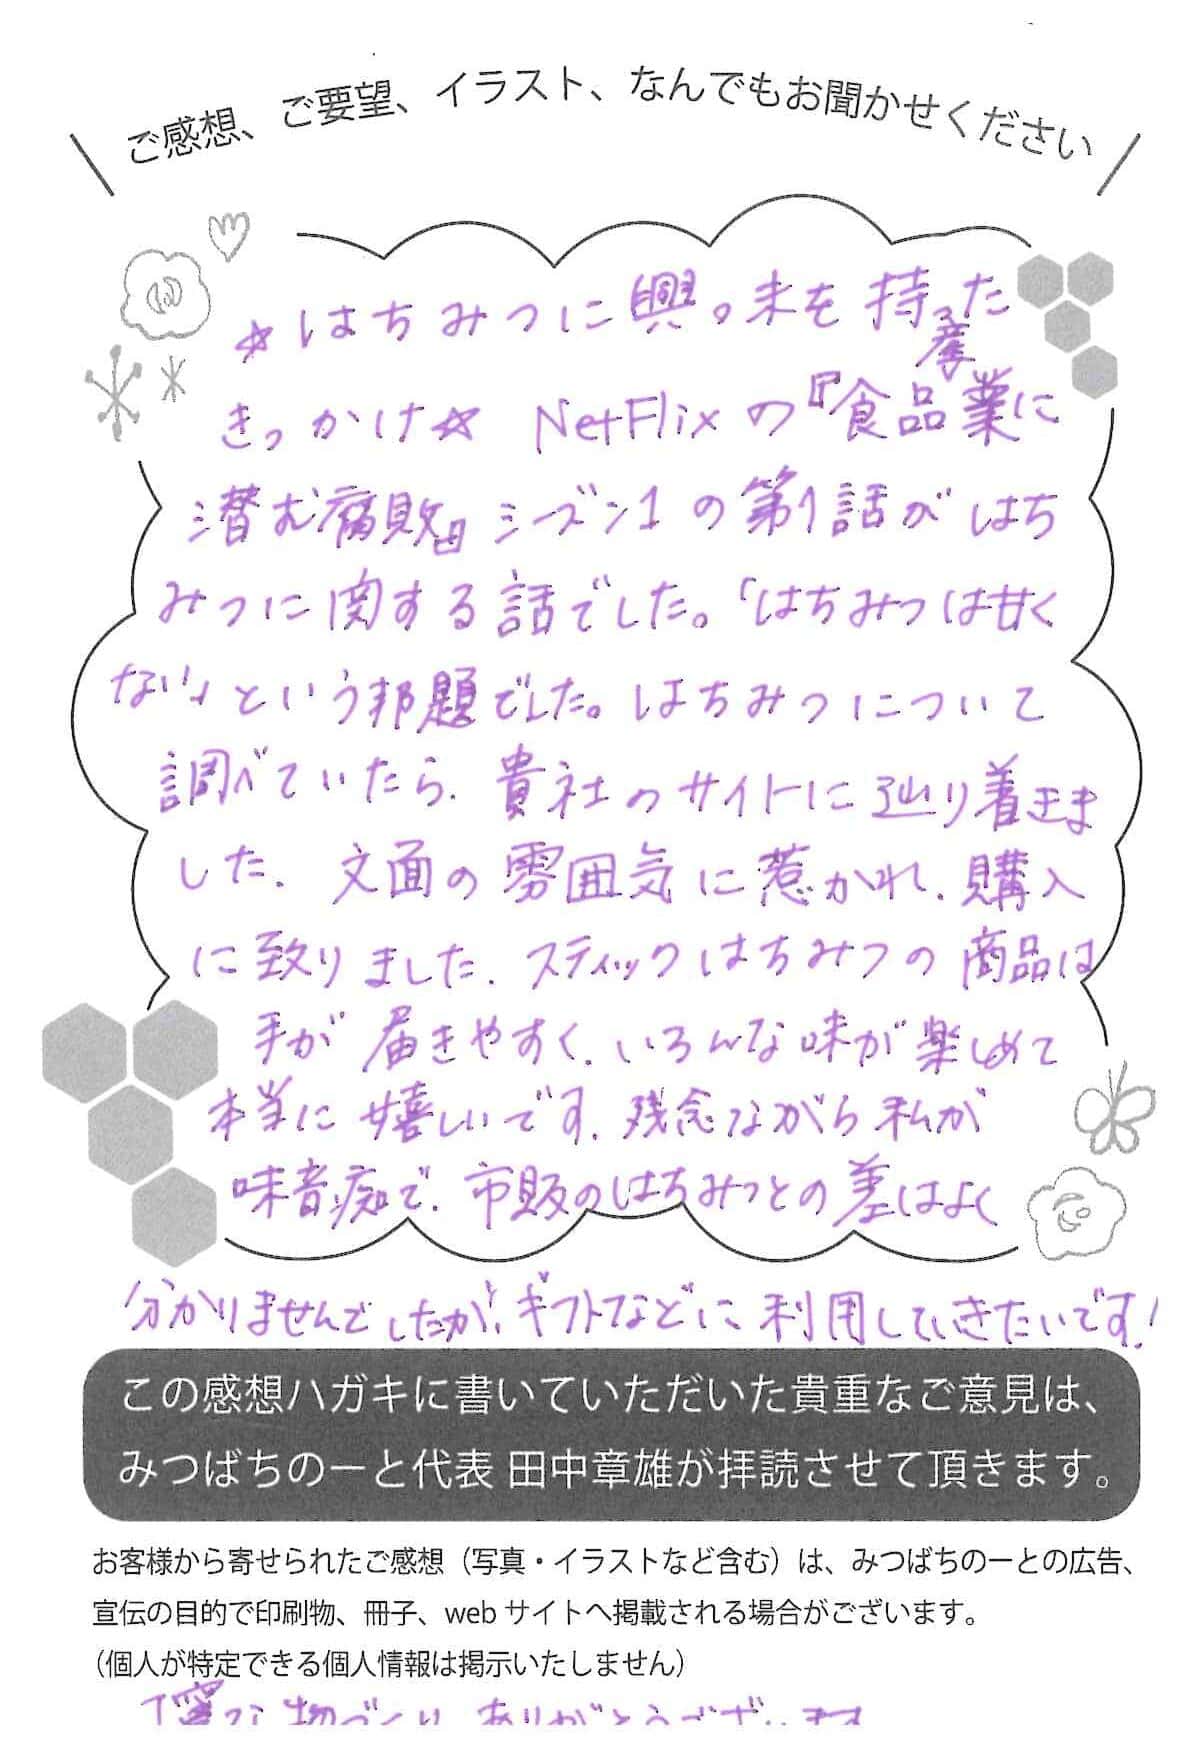 ご感想、ご要望、イラスト、なんでもお聞かせください
☆はちみつに興味を持った
きっかけ☆ NetFlixの『食品産業に
潜む腐敗』シーズン1の第1話がはち
みつに関する話でした。「はちみつは甘く
ない」という邦題でした。はちみつについて
調べていたら、貴社のサイトに辿り着きま
した。文面の雰囲気に惹かれ、購入
に致りました。スティックはちみつの商品は
手が届きやすく、いろんな味が楽しめて
本当に嬉しいです。残念ながら私が
味音痴で、市販のはちみつとの差はよく
分かりませんでしたが、ギフトなどに利用していきたいです!
この感想ハガキに書いていただいた貴重なご意見は、
みつばちのーと代表 田中章雄が拝読させて頂きます。
お客様から寄せられたご感想（写真・イラストなど含む）は、みつばちのーとの広告、
宣伝の目的で印刷物、冊子、webサイトへ掲載される場合がございます。
（個人が特定できる個人情報は掲示いたしません）
丁寧な物づくりありがとうございます